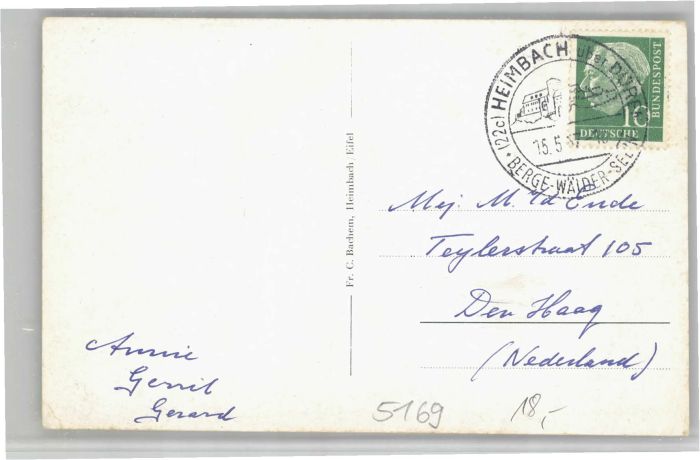 (22c) HEIMBACH über DÜREN
15.5.57
* BERGE-WÄLDER-SEEN
10
DEUTSCHE
BUNDESPOST
Mej. M. v/d Ende
Teylerstraat 105
Den Haag
(Nederland)
Fr. C. Bachem, Heimbach, Eifel
Annie
Gerrit
Gerard
5169
18,-